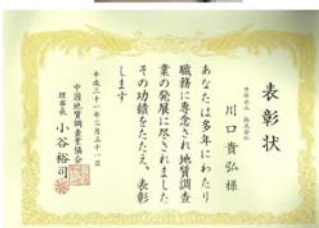 表彰状
株式会社
川口貴弘様
あなたは多年にわたり
職務に専念され地質調査
業の発展に尽されました
その功績をたたえ、表彰
します
平成三十一年三月三十一日
中国地質調査業協会
理事長 小谷裕司